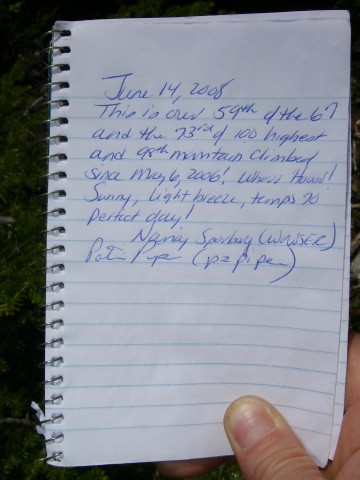 June 14, 2008
This is our 59th of the 67
and the 73rd of 100 highest
and 98th mountain climbed
since May 6, 2006!
Sunny, light breeze, temps 70
perfect day!
Nancy (WOWSER)
(pepiper)